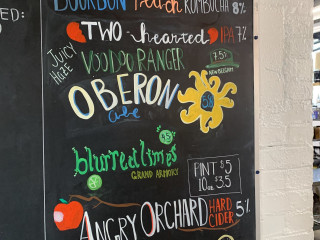 ED:
BOURBON Peach KOMBUCHA 8%
TWO hearted IPA 7%
JUICY HAZE
VOODOO RANGER 7.5%
NEW BELGIUM
OBERON
ale
5.8
blurred limes 4.5%
GRAND ARMORY
PINT $5
10oz. $3.5
ANGRY ORCHARD HARD CIDER 5%